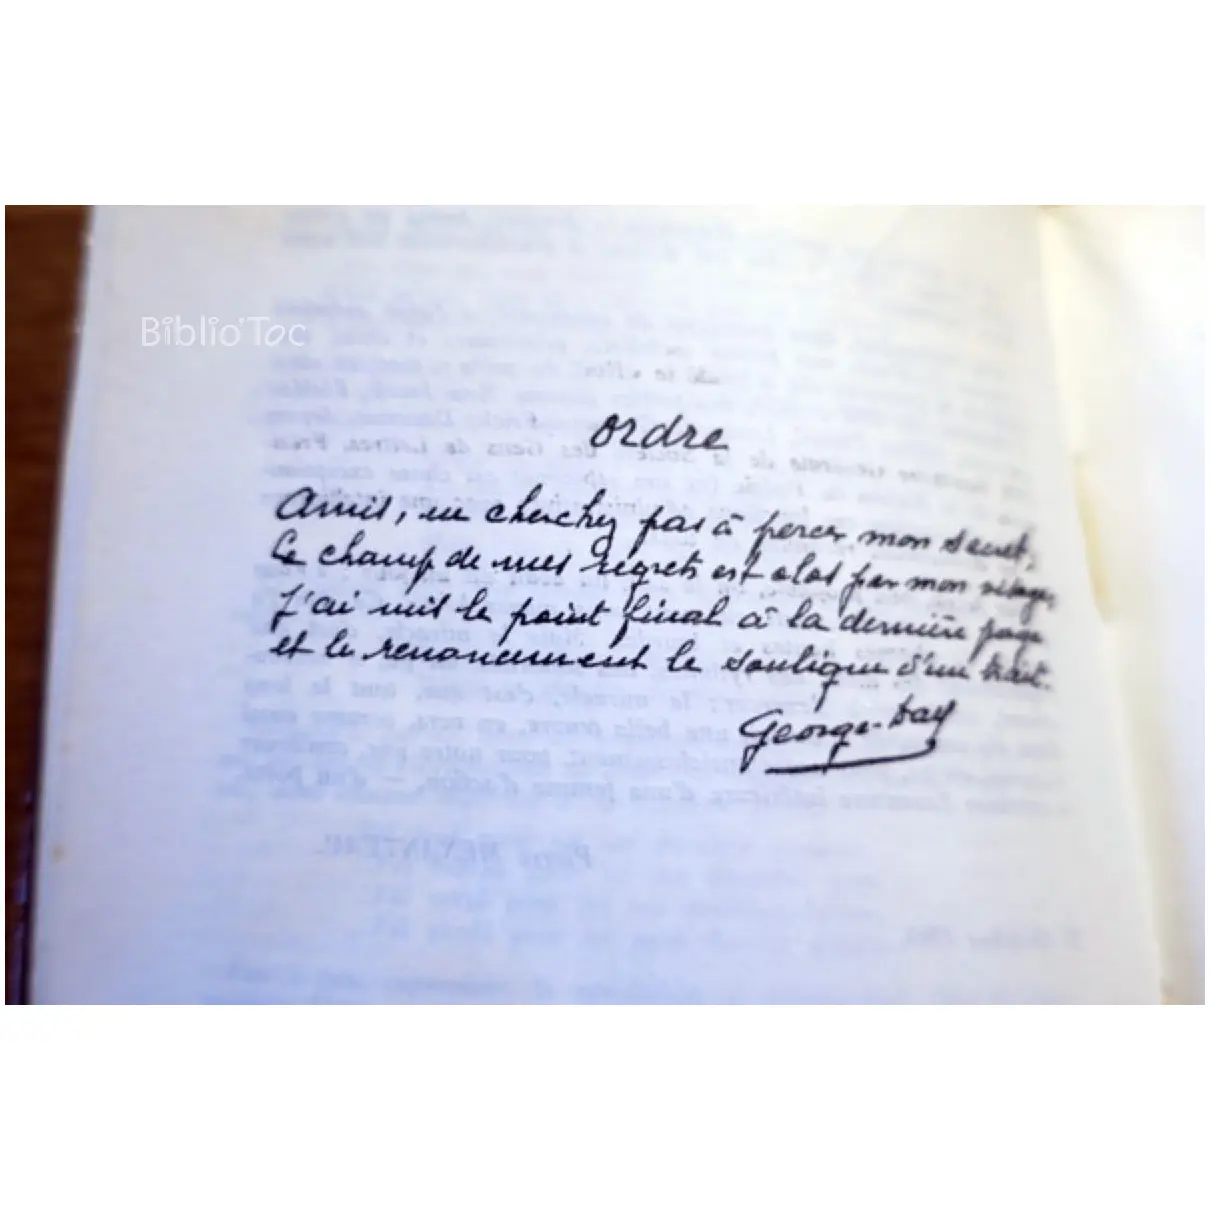 Biblio'Toc
ordre
Amis, ne cherchez pas à percer mon secret,
Le champ de mes regrets est clos par mon visage,
J'ai mis le point final à la dernière page
et le renoncement le souligne d'un trait.
George-Day